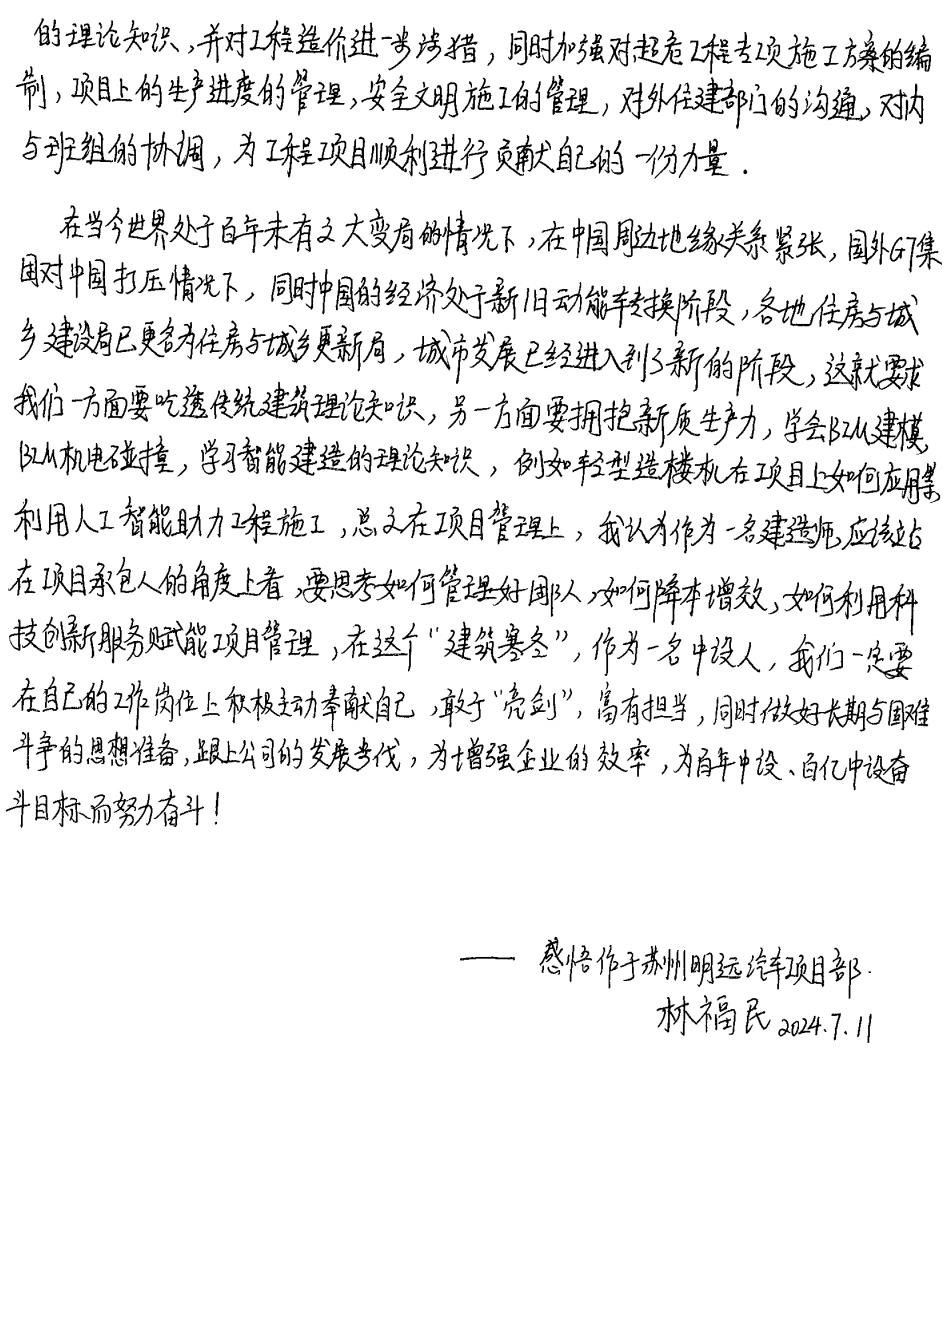 的理论知识，并对工程造价进一步涉猎，同时加强对超危工程专项施工方案的编
制，项目上的生产进度的管理，安全文明施工的管理，对外住建部门的沟通，对内
与班组的协调，为工程项目顺利进行贡献自己的一份力量．
在当今世界处于百年未有之大变局的情况下，在中国周边地缘关系紧张，国外G7集
团对中国打压情况下，同时中国的经济处于新旧动能转换阶段，各地住房与城
乡建设局已更名为住房与城乡更新局，城市发展已经进入到了新的阶段，这就要求
我们一方面要吃透传统建筑理论知识，另一方面要拥抱新质生产力，学会BIM建模，
BIM机电碰撞，学习智能建造的理论知识，例如轻型造楼机在项目上如何应用等
利用人工智能助力工程施工，总之在项目管理上，我认为作为一名建造师，应该站
在项目承包人的角度上看，要思考如何管理好团队，如何降本增效，如何利用科
技创新服务赋能项目管理，在这个“建筑寒冬”，作为一名中设人，我们一定要
在自己的工作岗位上积极主动奉献自己，敢于“亮剑”，富有担当，同时做好长期与困难
斗争的思想准备，跟上公司的发展步伐，为增强企业的效率，为百年中设、百亿中设奋
斗目标而努力奋斗！
—— 感悟作于苏州明远汽车项目部．
林福民 2024.7.11